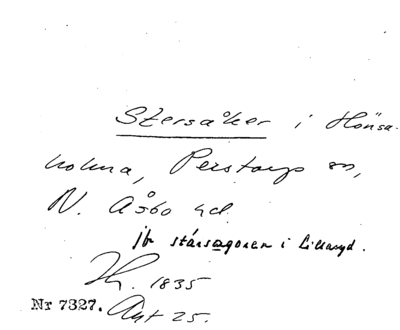 Stersåker i Hönsa-
holma, Perstorps sn,
N. Åsbo hd.
jfr stársagoren i Lillaryd.
1835
Nr 7327. Akt 25.